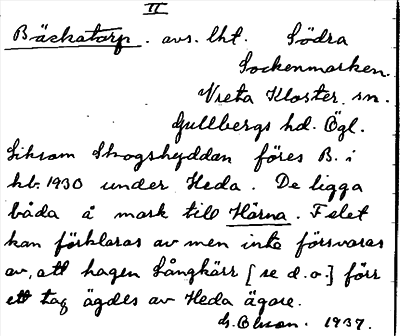 II
Bäckatorp. avs. lht. Södra
Sockenmarken.
Vreta Kloster sn.
Gullbergs hd. Ögl.
Liksom Skogshyddan föres B. i
hb. 1930 under Heda. De ligga
båda å mark till Härna. Felet
kan förklaras av men inte försvaras
av, att hagen Långkärr [se d.o.] förr
ett tag ägdes av Heda ägare.
G. Olson. 1937.